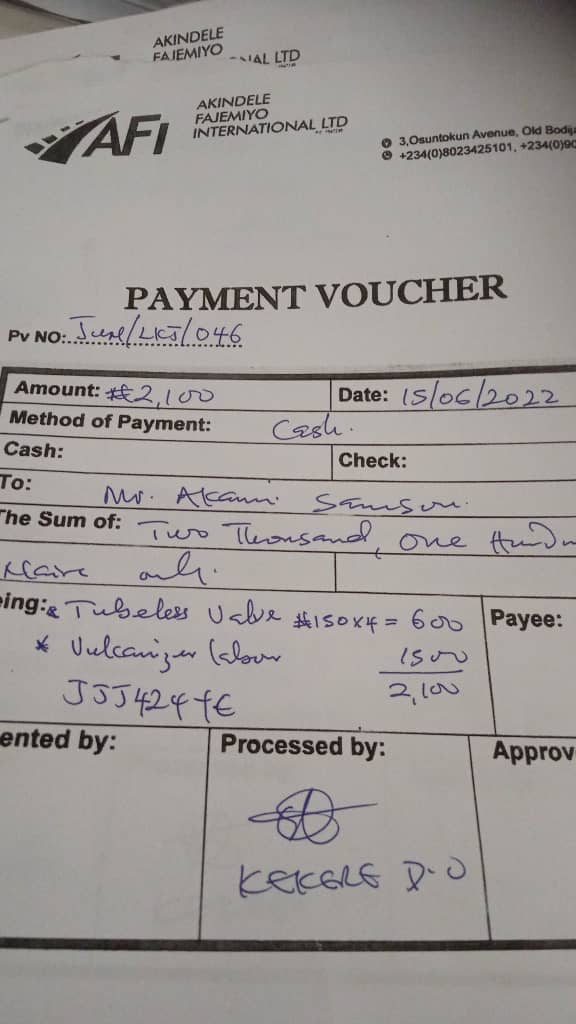 AKINDELE
FAJEMIYO
NAL LTD
AFI
AKINDELE
FAJEMIYO
INTERNATIONAL LTD
3,Osuntokun Avenue, Old Bodija
+234(0)8023425101, +234(0)90
PAYMENT VOUCHER
Pv NO: June/LKJ/046
Amount: ₦2,100 Date: 15/06/2022
Method of Payment: Cash.
Cash: Check:
To: Mr. Akanni Samson.
The Sum of: Two Thousand, One Hund
Naira only.
eing: * Tubeless Valve ₦150x4 = 600 Payee:
* Vulcanizer labour 1500
JJJ424 2,100
ented by: Processed by: Approv
KEKERE D.O